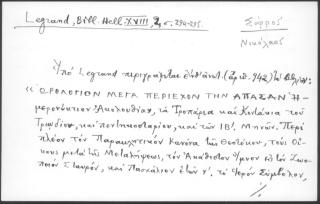 Legrand, Bibl. Hell. XVIII, 2, σ. 294-295.
Σύρρος
Νικόλαος
Ὑπὸ Legrand περιγράφεται (ἀριθ. 942)
«ὩΡΟΛΟΓΙΟΝ ΜΕΓΑ ΠΕΡΙΕΧΟΝ ΤΗΝ ΑΠΑΣΑΝ Ἡ-
μερονύκτιον Ἀκολουθίαν, τὰ Τροπάρια καὶ Κοντάκια τοῦ
Τριῳδίου, καὶ Πεντηκοσταρίου, καὶ τῶν ΙΒ΄. Μηνῶν. Περι
πλέον τὸν Παρακλητικὸν Κανόνα τῆς Θεοτόκου, τοὺς Οἴ-
κους μετὰ τῆς Μεταλήψεως, τὸν Ἀκάθιστον Ὕμνον εἰς τὸν Ζωο-
ποιὸν Σταυρόν, καὶ Πασχάλιον ἐτῶν τὸ Ἱερὸν Σύμβολον,